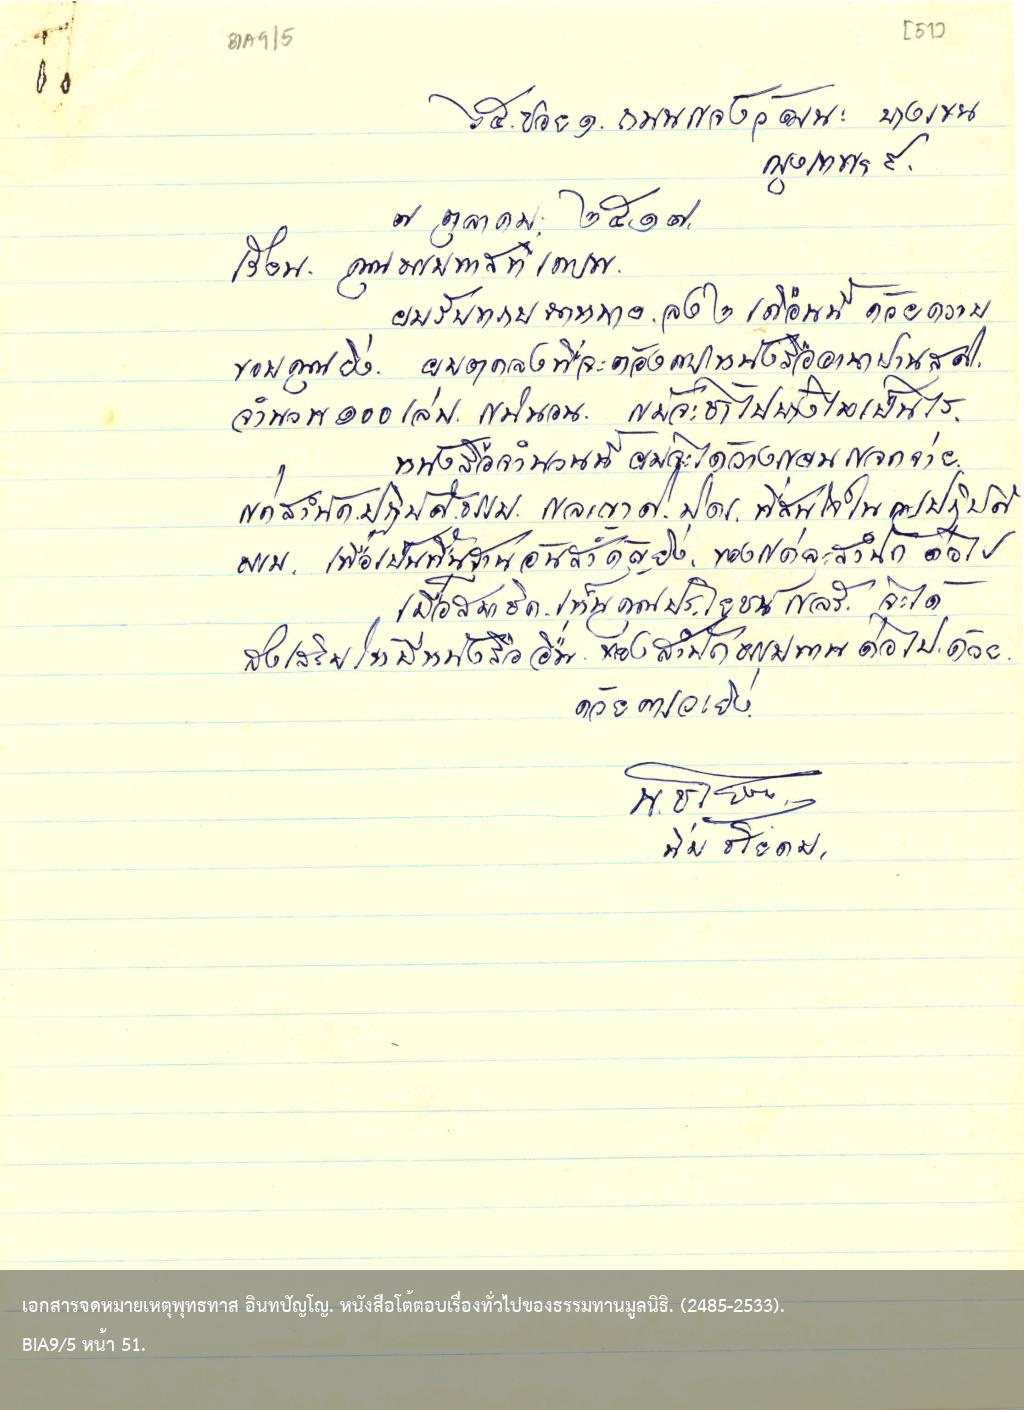 BIA9/5 [51]
ซอย ๑. ถนนแจ้งวัฒนะ บางเขน
กรุงเทพฯ.
๗ ตุลาคม. ๒๕๑๗.
เรียน. คุณ ที่
ผมรับทราบ ลง ๒ เดือนนี้ ด้วยความ
ขอบคุณยิ่ง. ผมตกลงที่จะต้อง หนังสืออานาปานสติ.
จำนวน ๑๐๐ เล่ม. แน่นอน. แม้จะช้าไปบ้างไม่เป็นไร.
หนังสือจำนวนนี้ ผมจะได้วางแผนแจกจ่าย.
แด่สำนัก.ปฏิบัติธรรม. และ ที่สนใจใน
เพื่อเป็นพื้นฐานอันสำคัญยิ่ง. ของแต่ละสำนัก ต่อไป
เมื่อสมาชิก.เห็นคุณประโยชน์ แล้ว. จะได้
ส่งเสริมให้มีหนังสืออื่น. ของสำนัก ต่อไป.ด้วย.
ด้วย
พ. ช
ไชยคม.
เอกสารจดหมายเหตุพุทธทาส อินทปัญโญ. หนังสือโต้ตอบเรื่องทั่วไปของธรรมทานมูลนิธิ. (2485-2533).
BIA9/5 หน้า 51.